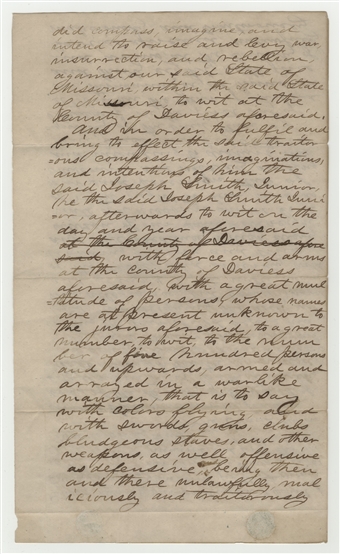 did compass, imagine, and
intend to raise and levy war,
insurrection, and, rebellion,
against our said State of
Missouri, within the said State
of Missouri, to wit at the
County of Daviess aforesaid.
And in order to fulfil and
bring to effect the said traitor
=ous compassings, imaginations,
and intentions of him the
said Joseph Smith, Junior,
he the said Joseph Smith Juni
=or, afterwards to wit on the
day and year aforesaid
at the County of Daviess afore
said, with force and arms
at the county of Daviess
aforesaid, with a great mul
=titude of persons, whose names
are at present unknown to
the jurors aforesaid, to a great
number, to wit, to the num
ber of five hundred persons
and upwards, armed and
arrayed in a warlike
manner, that is to say
with colors flying and
with swords, guns, clubs
bludgeons staves, and other
weapons, as well offensive
as defensive, being then
and there unlawfully, mal
iciously and traitorously